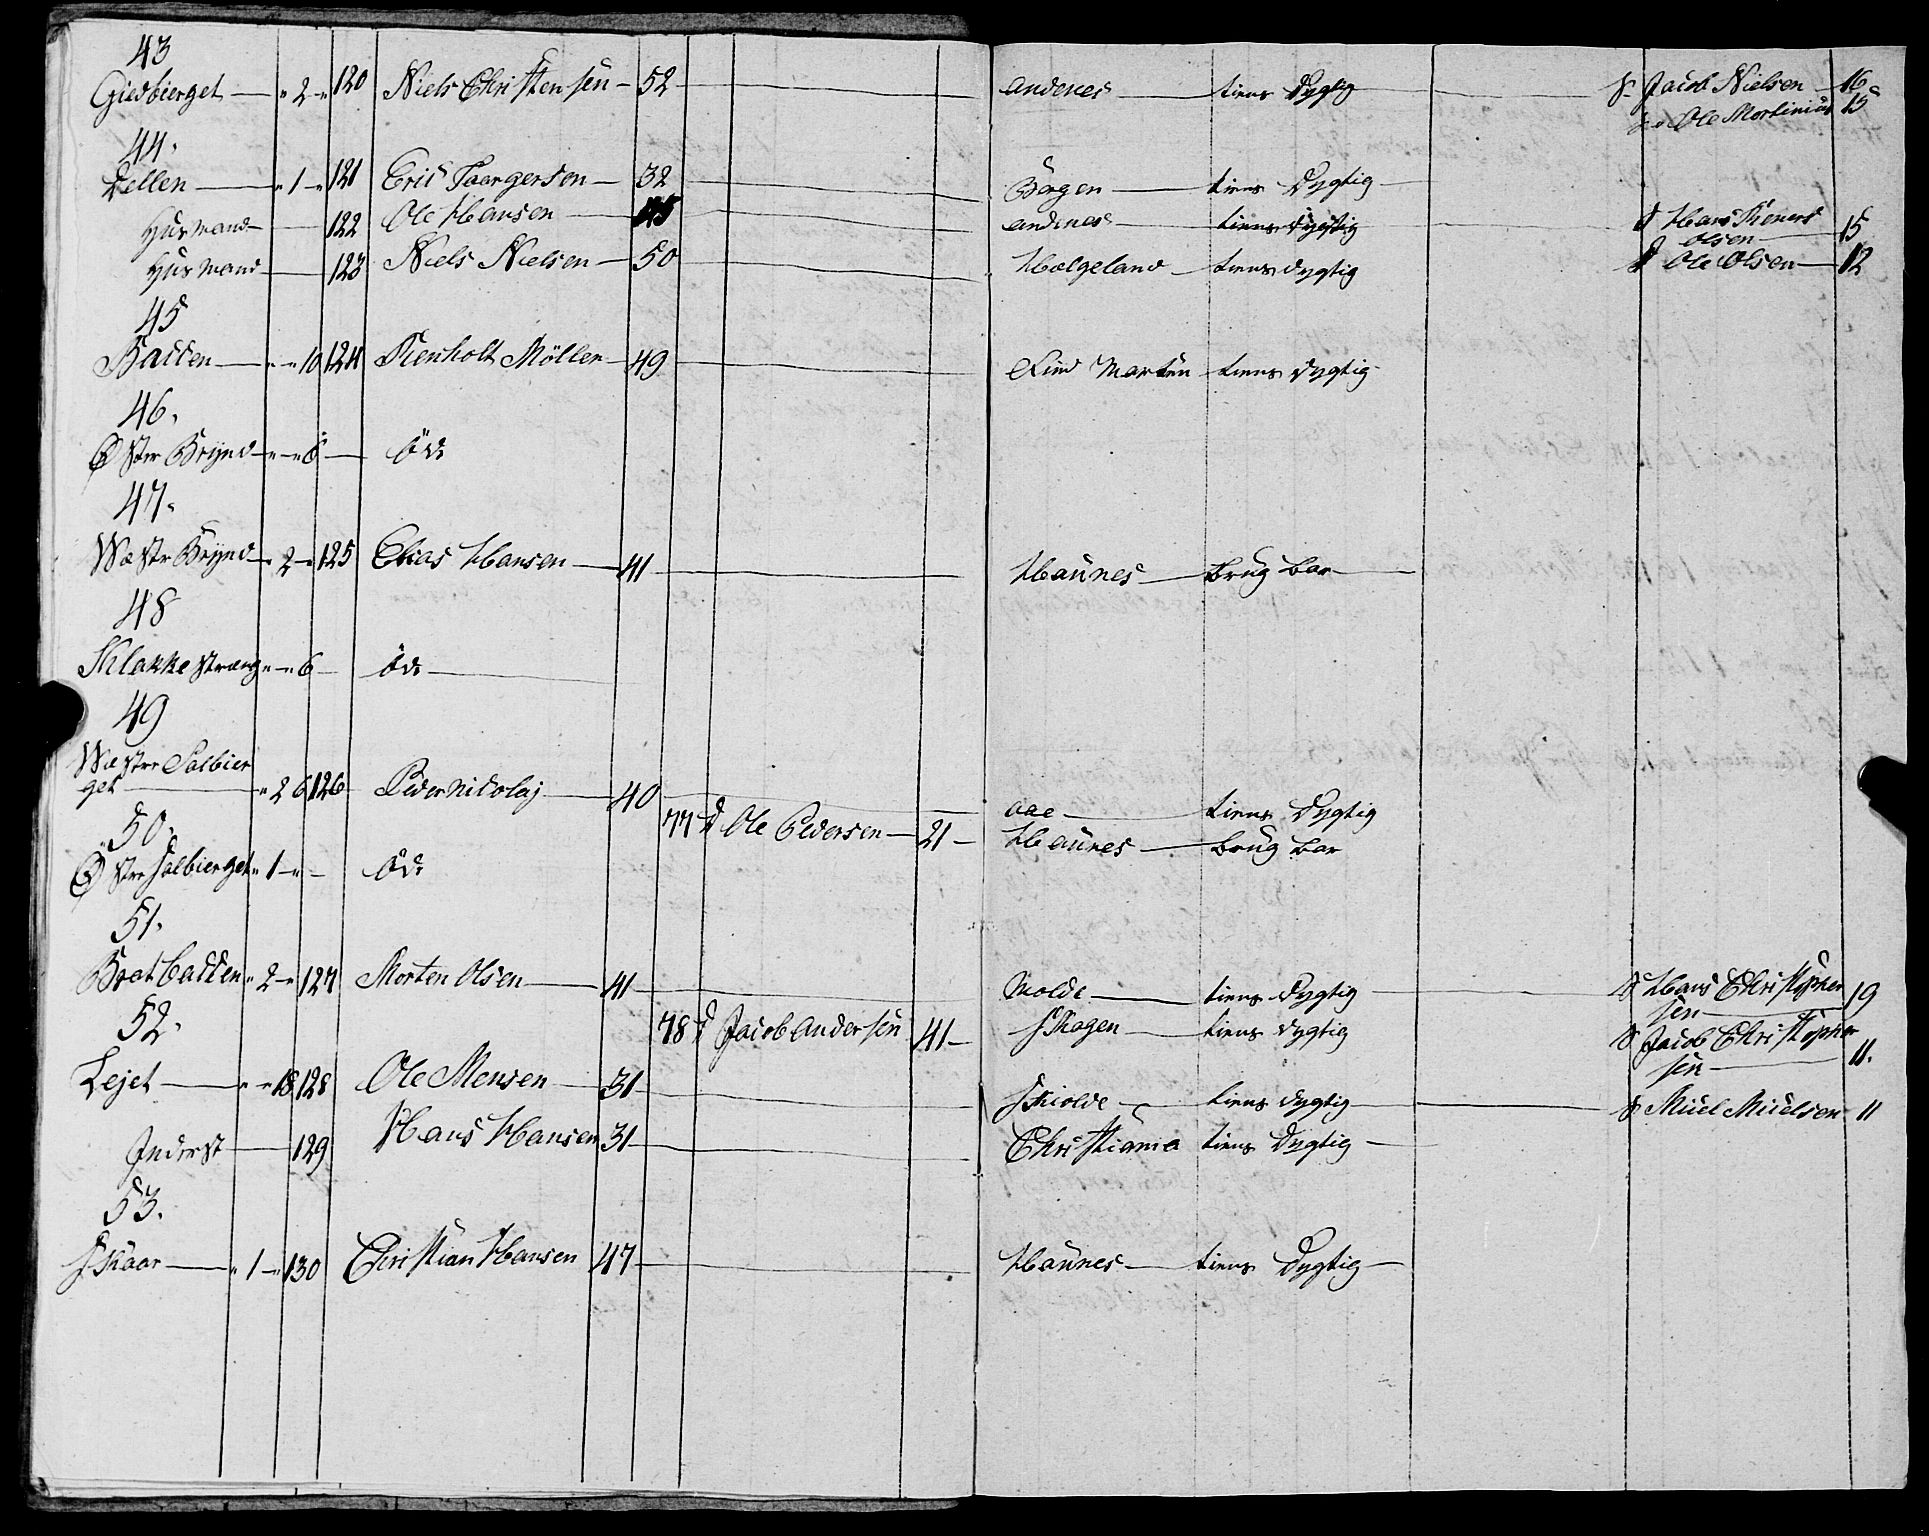 43
Giedbierget — " 2 " 120 Niels Christensen — 52 — Andenes — tiens Dygtig — S. Jacob Nielsen — 16
Ole Mortinius 15
44.
Dellen — " 1 " 121 Eric Taargersen — 32 — Bergen — tiens Dygtig —
Husmand — 122 Ole Hansen — 45 — andenes — tiens dygtig — S Hans Reners
Olsen — 15
Husmand — 123 Niels Nielsen — 50 — Hælgeland — tiens dygtig — S Ole Olsen — 12
45
Badden — " — " 10 124 Renholt Möller — 49 — Find Marken — tiens dygtig
46.
Øster Brynd — " — " 6 — öde
47.
Wæstr Brynd — " 2 — " 125 Elias Hansen — 41 — Haünes — brug bar —
48
Sklakke Stræng " — " 6 — öde —
49
Wæster Salbier
get — " 2 6 126 Peder Nicolaj — 40 — aae — tiens Dygtig
77 S Ole Pedersen — 21 — Haünes — brug bar
50.
Øster Salbierget " 1 — " — öde
51.
Bratbadden " 2 — " 127 Morten Olsen — 41 — Molde — tiens Dygtig — S Hans Christopher
sen — 19
52.
78 S Jacob Andersen 41 — Skogen — tiens dygtig S Jacob Christopher
sen — 11.
Lejet — " — " 18 128 Ole Mensen — 31 — Skiolde — tiens dygtig — S Micel Micelsen — 11
Inderst — 129 Hans Hansen 31 — Christiania tiens Dygtig —
53.
Skaar — " 1 — " 130 Christian Hansen 47 — Haünes — tiens Dygtig —